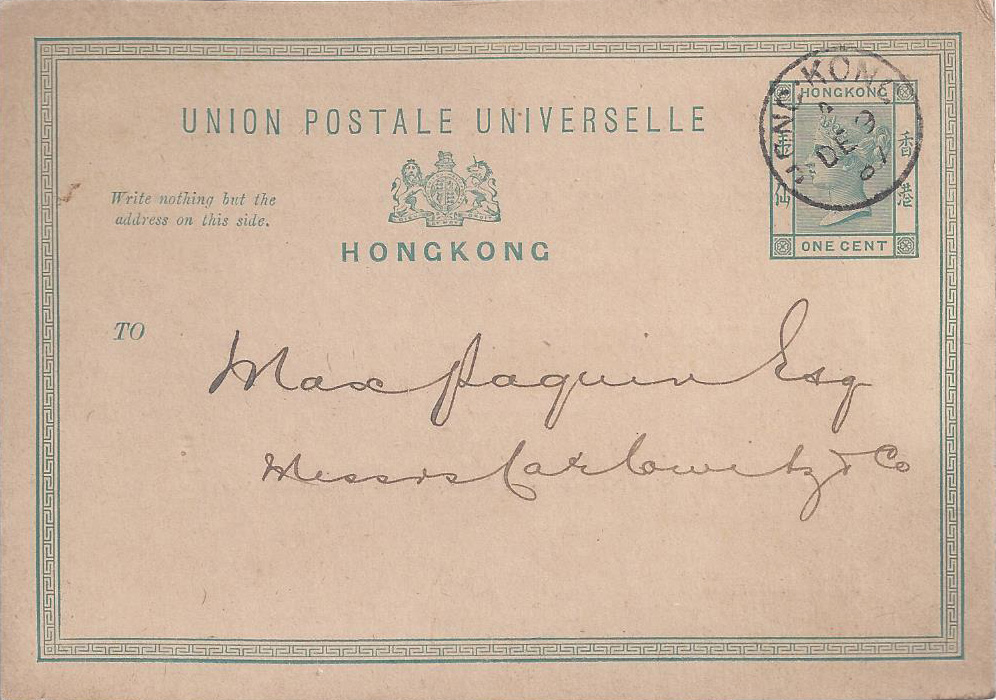 UNION POSTALE UNIVERSELLE
Write nothing but the
address on this side.
HONGKONG
HONGKONG
香港
ONE CENT
HONG KONG
DE 3
TO
Max Paquin Esq
Messrs Carlowitz & Co